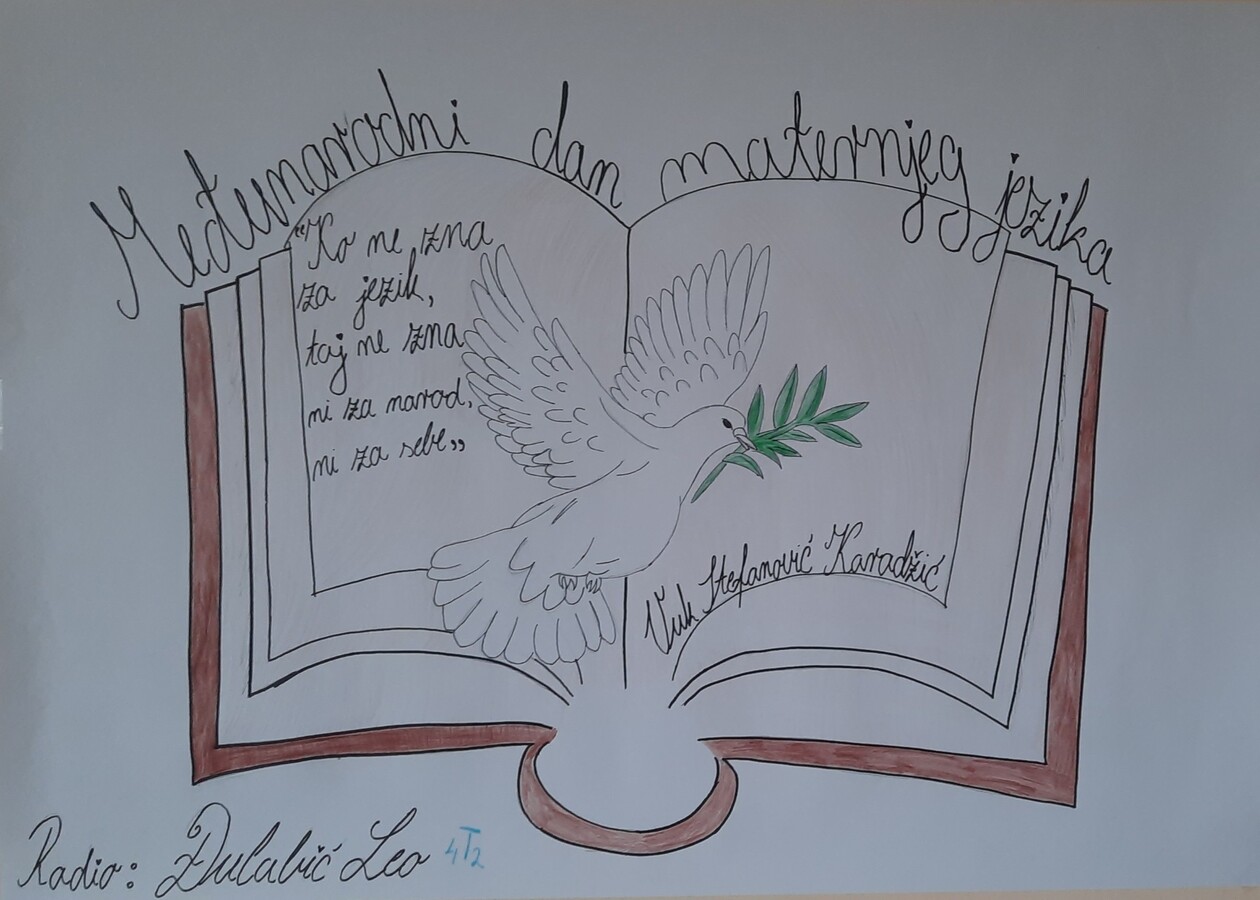 Međunarodni dan maternjeg jezika
"Ko ne zna
za jezik,
taj ne zna
ni za narod,
ni za sebe„
Vuk Stefanović Karadžić
Radio: Đulabić Leo 4T2